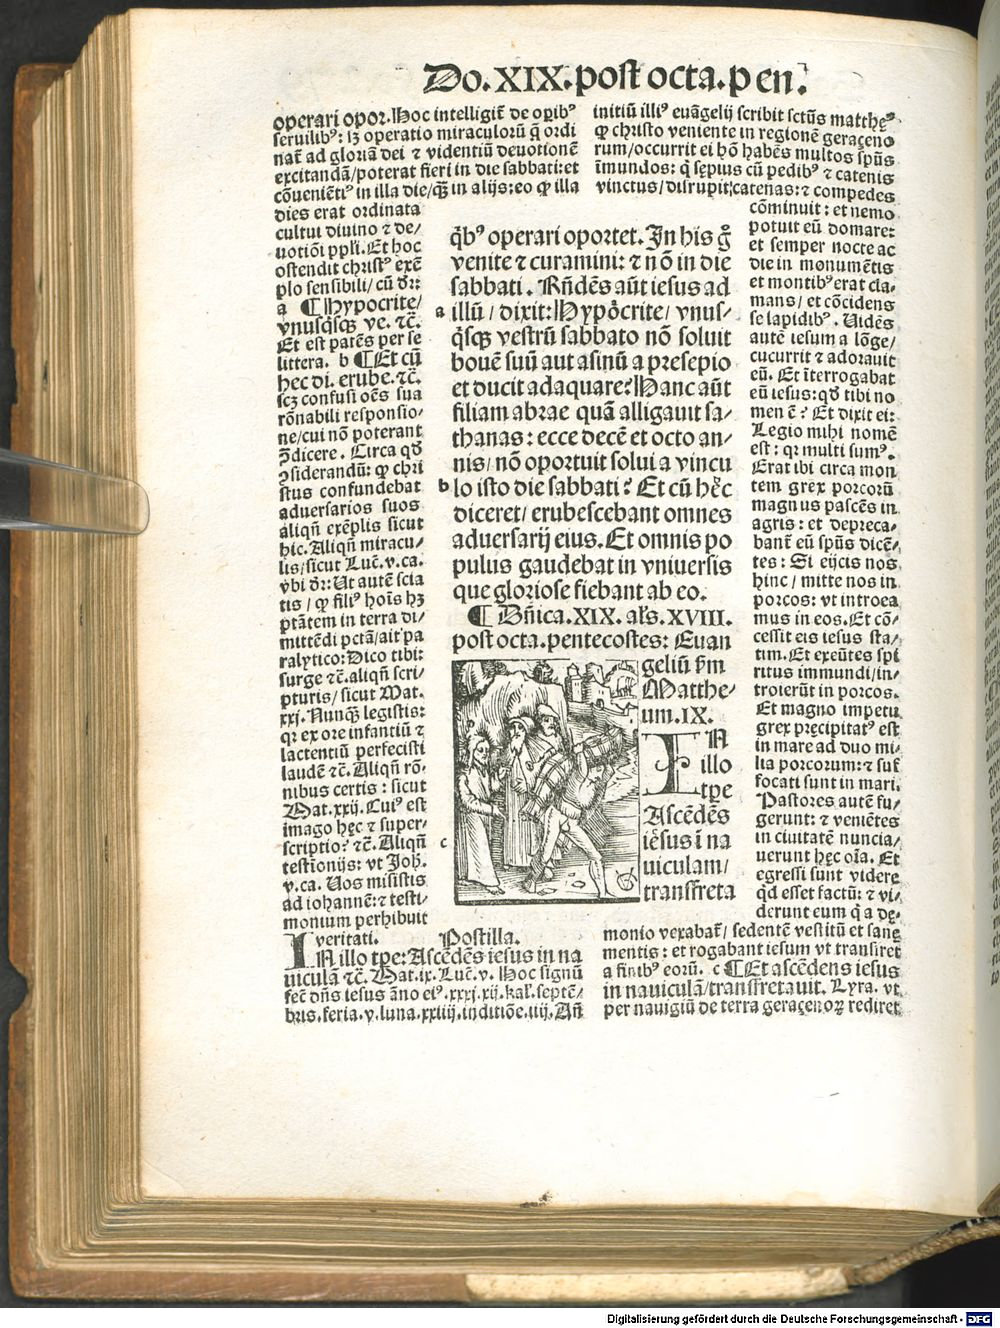 Do.XIX.post octa.pen.
operari opor. Hoc intelligit̃ de oꝑibꝰ
seruilibꝰ: lꝫ operatio miraculorũ q̃ ordi
nat̃ ad gloriã dei ⁊ videntiũ deuotionẽ
excitandã/poterat fieri in die sabbati: et
cõueniẽtiꝰ in illa die/qꝫ̃ in alijs: eo ꝙ illa
dies erat ordinata
cultui diuino ⁊ de/
uotiõi ppl̃i. Et hoc
ostendit christꝰ exẽ
plo sensibili/ cũ dr̃:
a ¶ Hypocrite/
vnusq̃sqꝫ ve. ⁊c̃.
Et est patẽs per se
littera. b ¶ Et cũ
hec di. erube. ⁊c̃.
scꝫ confusi oẽs sua
rõnabili responsio/
ne/cui nõ poterant
ꝯdicere. Circa qđ
ꝯsiderandũ: ꝙ chri
stus confundebat
aduersarios suos
aliqñ exẽplis sicut
hic. Aliqñ miracu/
lis/sicut Luc̃. v. ca.
vbi dr̃: Ut autẽ scia
tis / ꝙ filiꝰ hoĩs hꝫ
ptãtem in terra di/
mittẽdi pctã/ait pa
ralytico: Dico tibi:
surge ⁊c̃. aliqñ scri/
pturis/ sicut Mat.
xxj. Nunqꝫ̃ legistis:
qꝛ ex ore infantiũ ⁊
lactentiũ perfecisti
laudẽ ⁊c̃. Aliqñ rõ/
nibus certis: sicut
Mat. xxij. Cuiꝰ est
imago hęc ⁊ super/
scriptio? ⁊c̃. Aliqñ
testĩonijs: vt Joh̃.
v. ca. Uos misistis
ad iohannẽ: ⁊ testi/
monium perhibuit
veritati. Postilla.
IN illo tp̃e: Ascẽdẽs iesus in na
uiculã ⁊c̃. Mat. ix. Luc̃. v. Hoc signũ
fec̃ dñs iesus ãno eiꝰ. xxxj. xij. kal̃. septẽ/
bris. feria. v. luna. xxiiij. inditiõe. iiij. Añ
q̃bꝰ operari oportet. In his g̃
venite ⁊ curamini: ⁊ nõ in die
sabbati. Rñdẽs aũt iesus ad
a illũ / dixit: Hypocrite/ vnus/
q̃sqꝫ vestrũ sabbato nõ soluit
bouẽ suũ aut asinũ a presepio
et ducit adaquare? Hanc aũt
filiam abrae quã alligauit sa/
thanas: ecce decẽ et octo an/
nis/ nõ oportuit solui a vincu
b lo isto die sabbati? Et cũ hęc
diceret/ erubescebant omnes
aduersarij eius. Et omnis po
pulus gaudebat in vniuersis
que gloriose fiebant ab eo.
¶ Dñica. XIX. al's. XVIII.
post octa. pentecostes: Euan
geliũ s̃m
Matthe/
um. IX.
IN
illo
tp̃e
Ascẽdẽs
c iesus ĩ na
uiculam/
transfreta
initiũ illiꝰ euãgelij scribit sctũs matthęꝰ
ꝙ christo veniente in regionẽ geraçeno
rum/occurrit ei hõ habẽs multos sp̃us
ĩmundos: q̃ sępius cũ pedibꝰ ⁊ catenis
vinctus/ disrupit catenas: ⁊ compedes
cõminuit: et nemo
potuit eũ domare:
et semper nocte ac
die in monumẽtis
et montibꝰ erat cla/
mans/ et cõcidens
se lapidibꝰ. Uidẽs
autẽ iesum a lõge/
cucurrit ⁊ adorauit
eũ. Et ĩterrogabat
eũ iesus: qđ tibi no
men ẽ? Et dixit ei:
Legio mihi nomẽ
est: qꝛ multi sumꝰ.
Erat ibi circa mon
tem grex porcorũ
magnus pascẽs in
agris: et depreca/
bant̃ eũ sp̃us dicẽ/
tes: Si eijcis nos
hinc / mitte nos in
porcos: vt introea
mus in eos. Et cõ/
cessit eis iesus sta/
tim. Et exeũtes spi
ritus immundi/in/
troierũt in porcos.
Et magno impetu
grex pręcipitatꝰ est
in mare ad duo mi/
lia porcorum: ⁊ suf
focati sunt in mari.
Pastores autẽ fu/
gerunt: ⁊ veniẽtes
in ciuitatẽ nuncia/
uerunt hęc oĩa. Et
egressi sunt videre
qđ esset factũ: ⁊ vi/
derunt eum q̃ a dę/
monio vexabat̃/ sedentẽ vestitũ et sanę
mentis: et rogabant iesum vt transiret
a finibꝰ eorũ. c ¶ Et ascẽdens iesus
in nauiculã/transfretauit. Lyra. vt
per nauigiũ de terra geraçenoꝝ rediret
Digitalisierung gefördert durch die Deutsche Forschungsgemeinschaft - DFG